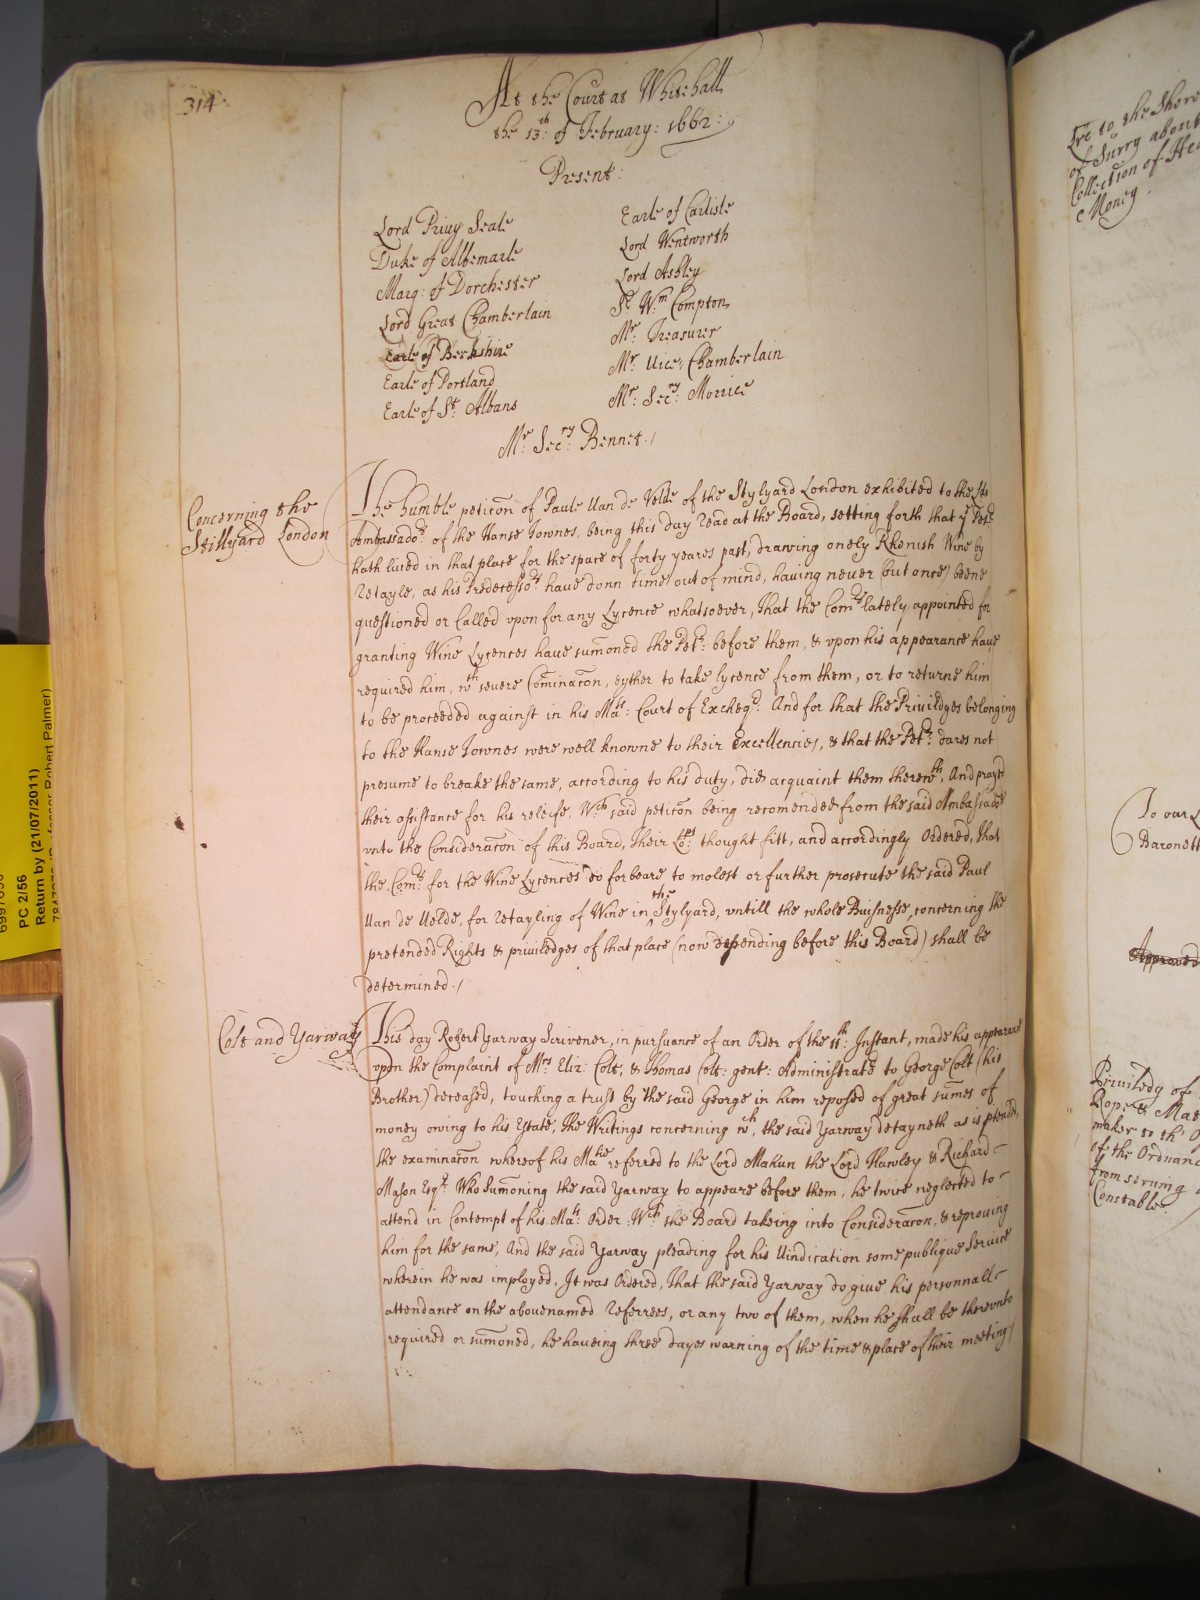 314
At the Court at Whitehall
the 13th: of February: 1662:
Present:
Lord Privy Seale
Duke of Albemarle
Marq: of Dorchester
Lord Great Chamberlain
Earle of Berkshire
Earle of Portland
Earle of St: Albans
Earle of Carlisle
Lord Wentworth
Lord Ashley
Sr Wm Compton
Mr: Treasurer
Mr: Vice-Chamberlain
Mr: Secry: Morrice
Mr: Secry: Bennet./
Concerning the
Stillyard London
The humble peticõn of Paule Uan de Velde of the Stylyard London exhibited to the Lds
Ambassadors: of the Hanse Townes, being this day read at the Board, setting forth that ye Petr:
hath lived in that place for the space of forty yeares past, drawing onely Rhenish Wine by
Retayle, as his Predecessors have donn time out of mind, having never (but once) beene
questioned or Called vpon for any Lycence whatsoever, That the Comrs lately appointed for
granting Wine Lycences have sumoned the Petr: before them, & vpon his appearance have
required him, wth severe Cominacõn, eyther to take lycence from them, or to returne him
to be proceeded against in his Mats: Court of Excheqr: And for that the Priviledges belonging
to the Hanse Townes were well knowne to their Excellencies, & that the Petr: dares not
presume to breake the same, according to his duty, did acquaint them therewth, And prayed
their assistance for his releife. Wch said peticõn being recomended from the said Ambassadors
vnto the Consideracõn of this Board, Their Lops: thought fitt, and accordingly Ordered, that
the Comrs: for the Wine Lycences do forbeare to molest or further prosecute the said Paul
Uan de Uelde, for retayling of Wine in the Stylyard, vntill the whole Buisnesse, concerning the
pretended Rights & priviledges of that place (now depending before this Board) shall be
determined./
Colt and Yarway
This day Robert Yarway Scrivener, in pursuance of an Order of the 11th: Instant, made his appearance
vpon the Complaint of Mrs Eliz: Colt, & Thomas Colt: gent: Administratrs to George Colt (his
Brother) deceased, touching a trust by the said George in him reposed of great sumes of
money owing to his Estate, the Writings concerning wch, the said Yarway detayneth as is ptended,
the examinacõn whereof his Matie referred to the Lord Mahun the Lord Hawley & Richard
Mason Esqr: Who Sumoning the said Yarway to appeare before them, he twice neglected to
attend in Contempt of his Mats: Order: Wch the Board takeing into Consideracõn, & reproving
him for the same, And the said Yarway pleading for his Uindication some publique Service
wherein he was imployed, It was Ordered, That the said Yarway do give his personnall
attendance on the abovenamed Referrees, or any two of them, when he shall be therevnto
required or sumoned, he haveing three dayes warning of the time & place of their meeting/
PC 2/56
Return by (21/07/2011)
Robert Palmer)
Lre to the
of Surry about
Collection of
Money.
To our
Baronett
Approved
Priviledg of
Rope
maker to the
of the Ordnance
from serving
Constable.